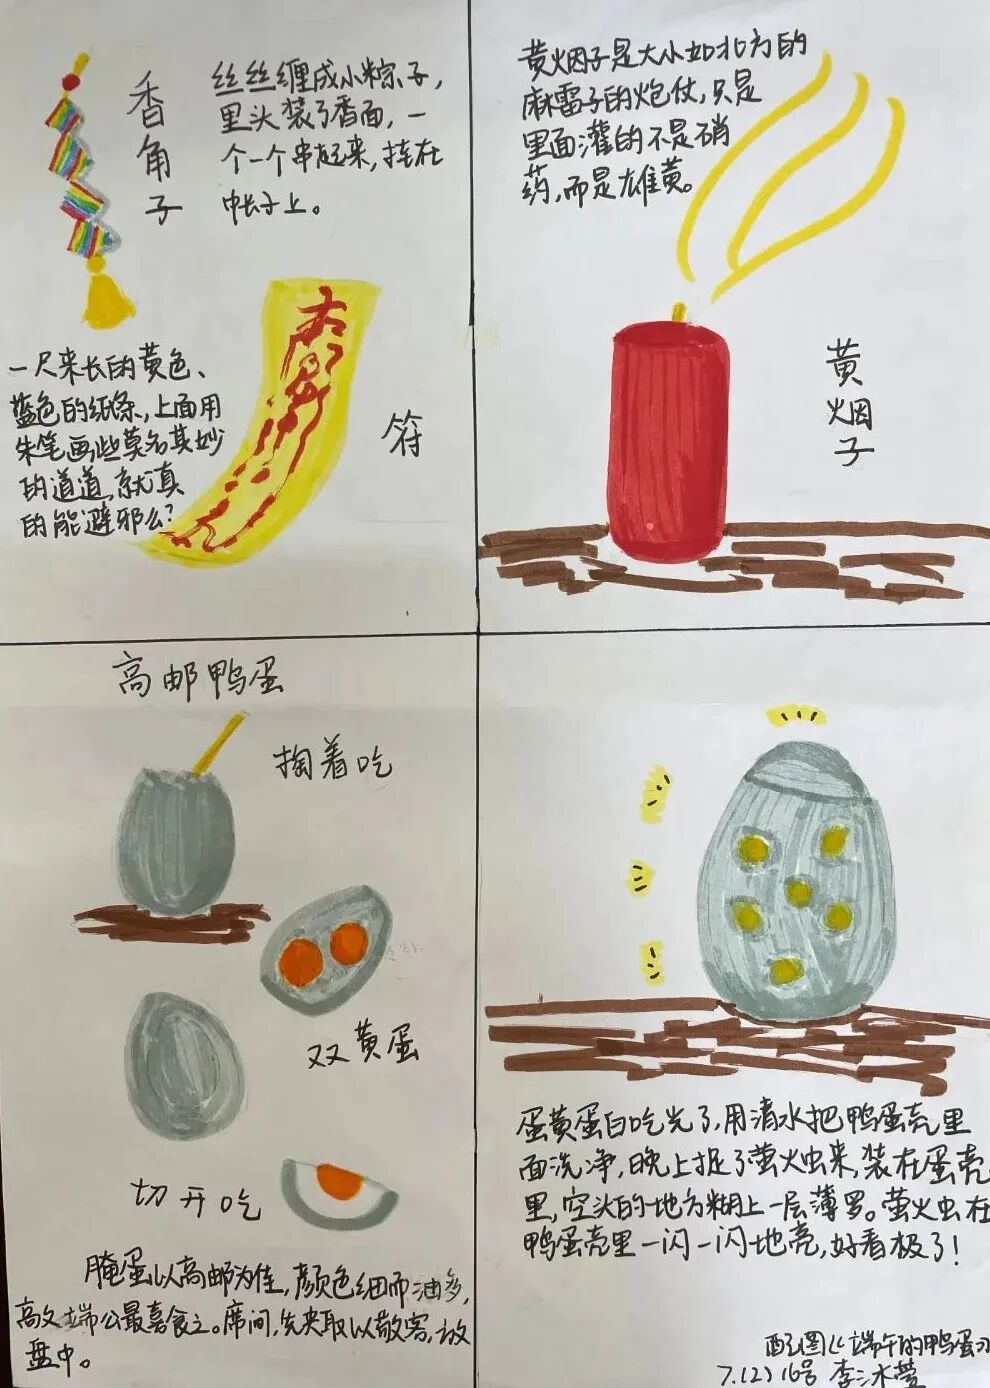 香角子
丝丝缠成小粽子,
里头装了香面,一
个一个串起来,挂在
帐子上。
一尺来长的黄色、
蓝色的纸条,上面用
朱笔画些莫名其妙
的道道,就真
的能避邪么?
符
黄烟子是大小如北方的
麻雷子的炮仗,只是
里面灌的不是硝
药,而是雄黄。
黄烟子
高邮鸭蛋
掏着吃
双黄蛋
切开吃
腌蛋以高邮为佳,颜色细而油多,
高文端公最喜食之。席间,先夹取以敬客,放
盘中。
蛋黄蛋白吃光了,用清水把鸭蛋壳里
面洗净,晚上捉了萤火虫来,装在蛋壳
里,空头的地方糊上一层薄罗。萤火虫在
鸭蛋壳里一闪一闪地亮,好看极了!
配图《端午的鸭蛋》
7.(2) 16号 李冰莹